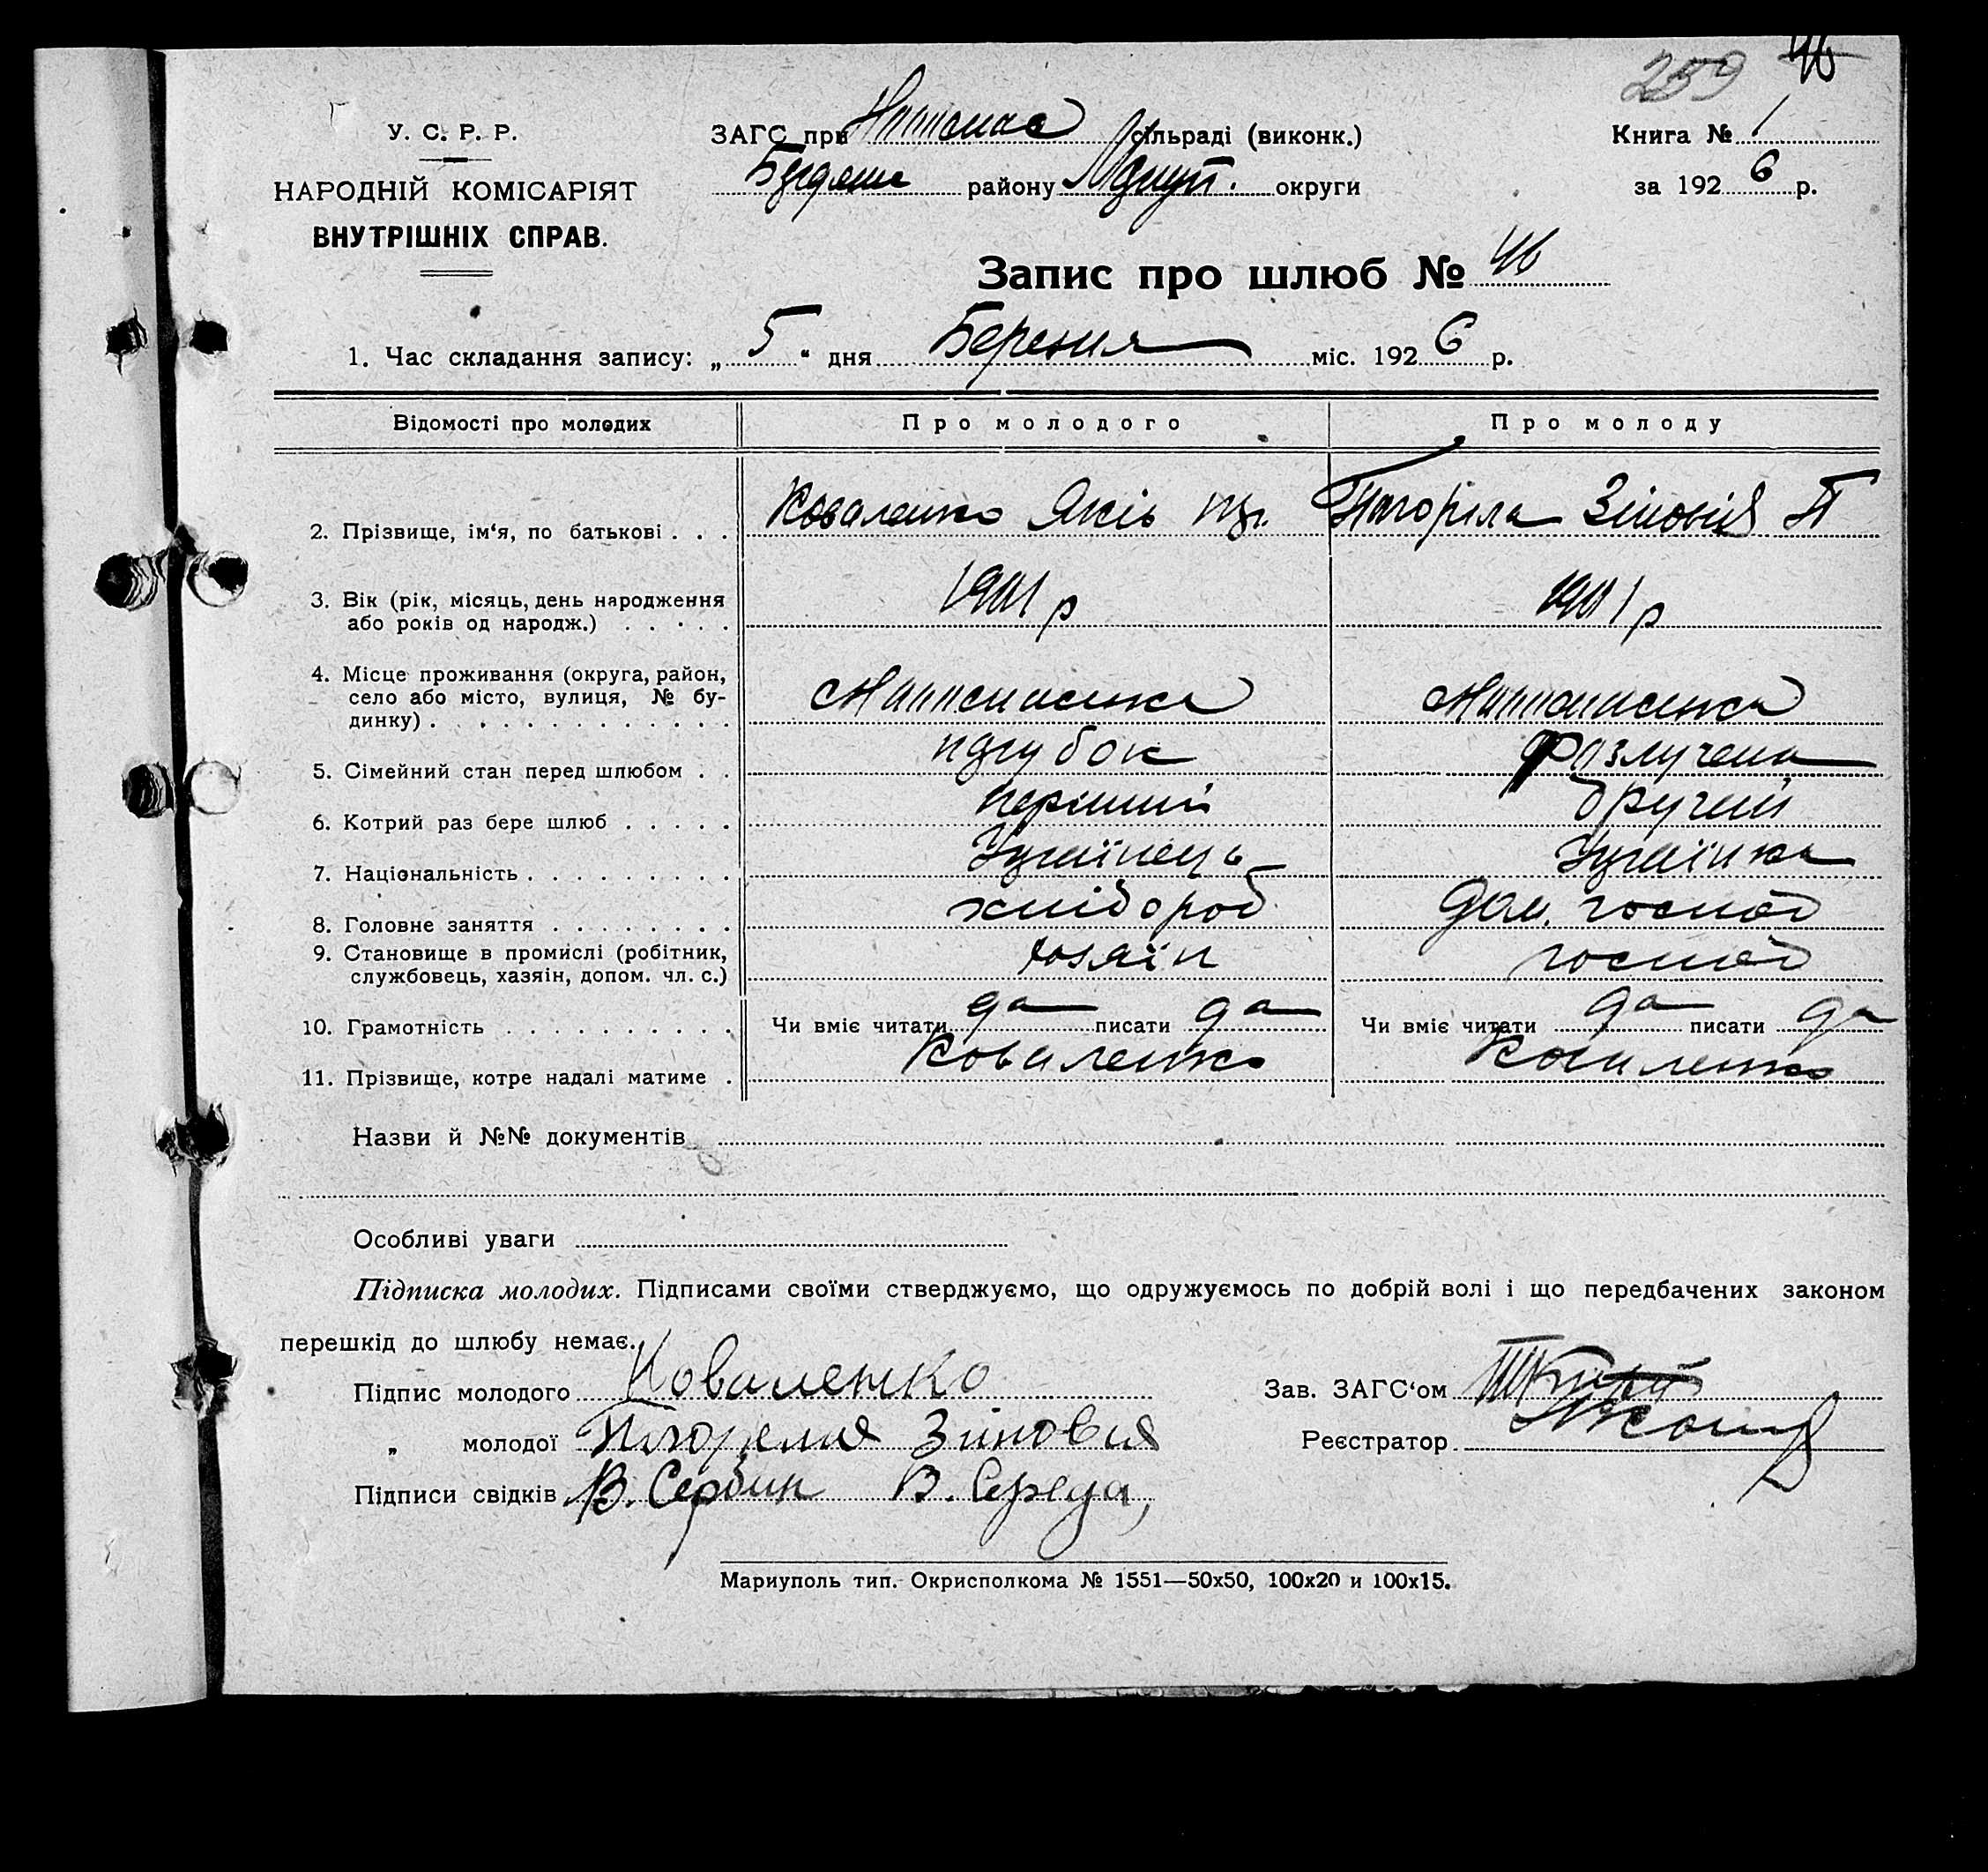 259 46
У. С. Р. Р.
НАРОДНІЙ КОМІСАРІЯТ
ВНУТРІШНІХ СПРАВ.
ЗАГС при сільраді (виконк.)
району округи
Книга № 1
за 192 6 р.
Запис про шлюб № 46
1. Час складання запису: „ 5 “ дня Березня міс. 192 6 р.
Відомості про молодих Про молодого Про молоду
2. Прізвище, ім‘я, по батькові . . . Коваленко Яків Погоріла Зіновія П
3. Вік (рік, місяць, день народження
або років од народж.) . . . . . 1901 р 1901 р
4. Місце проживання (округа, район,
село або місто, вулиця, № бу-
динку) . . . . . . . . . . . .
5. Сімейний стан перед шлюбом . . парубок разлучена
6. Котрий раз бере шлюб . . . . . перший другий
7. Національність . . . . . . . . . Українець Українка
8. Головне заняття . . . . . . . . хлібороб дом. господ
9. Становище в промислі (робітник,
службовець, хазяін, допом. чл. с.) хозяїн господ
10. Грамотність . . . . . . . . . . Чи вміє читати да писати да Чи вміє читати да писати да
11. Прізвище, котре надалі матиме . Коваленко Коваленко
Назви й №№ документів
Особливі уваги
Підписка молодих. Підписами своїми стверджуємо, що одружуємось по добрій волі і що передбачених законом
перешкід до шлюбу немає.
Підпис молодого Коваленко Зав. ЗАГС‘ом
„ молодої Зіновия Реєстратор
Підписи свідків В. Сербин В. Середа,
Мариуполь тип. Окрисполкома № 1551—50х50, 100х20 и 100х15.